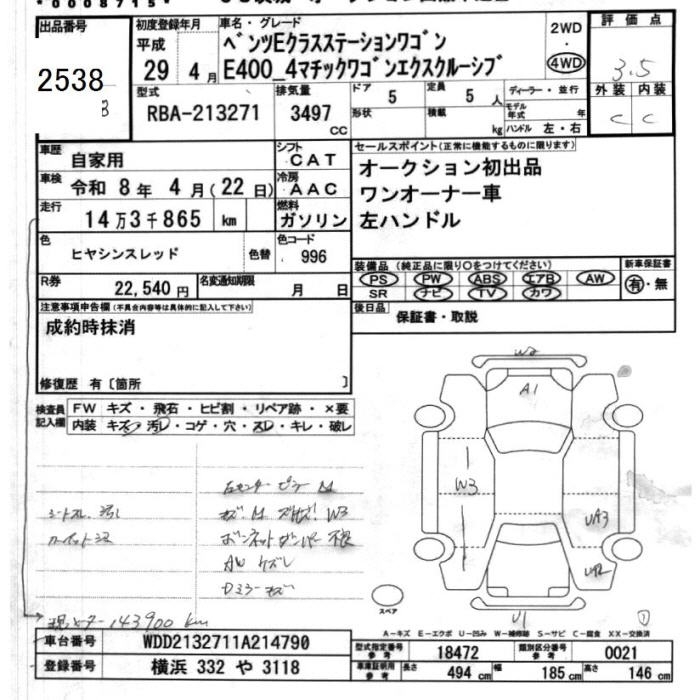 *0008715*
出品番号 初度登録年月 車名・グレード 評価点
2538
B
平成 29 4月
ベンツEクラスステーションワゴン
E400_4マチックワゴンエクスクルーシブ
2WD
・
4WD
3.5
型式 RBA-213271
排気量 3497 CC
ドア 5 定員 5 人
形状 積載 kg
ディーラー・並行
モデル年式 年
ハンドル 左・右
外装 内装
C C
車歴 自家用
シフト CAT
車検 令和 8年 4月(22日)
冷房 AAC
走行 14万3千865 km
燃料 ガソリン
色 ヒヤシンスレッド 色替
色コード 996
R券 22,540円 名変通知期限 月 日
セールスポイント(正常に機能するものに限ります)
オークション初出品
ワンオーナー車
左ハンドル
装備品 (純正品に限り○をつけてください) 新車保証書
PS PW ABS エアB AW 有・無
SR ナビ TV カワ
後日品 保証書・取説
注意事項申告欄(不具合内容等は具体的に記入して下さい)
成約時抹消
修復歴 有〔箇所 〕
検査員記入欄
FW キズ・飛石・ヒビ割・リペア跡・×要
内装 キズ・汚レ・コゲ・穴・スレ・キレ・破レ
W3
AW
W2
A1
W3
UA3
UA2
U1
スペア
143900 km
A-キズ E-エクボ U-凹み W-補修跡 S-サビ C-腐食 XX-交換済
車台番号 WDD2132711A214790
登録番号 横浜 332 や 3118
型式指定番号 参考 18472 類別区分番号 参考 0021
車車証明用 参考 長さ 494 cm 幅 185 cm 高さ 146 cm